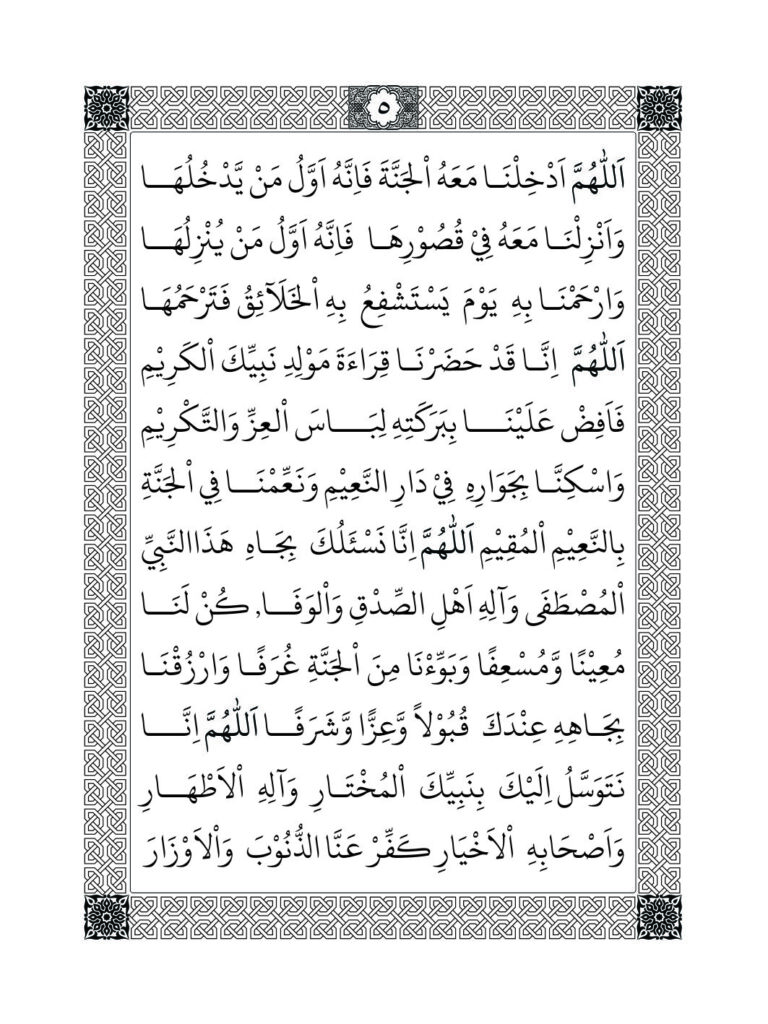 ٥
اَللّٰهُمَّ اَدْخِلْنَا مَعَهُ الْجَنَّةَ فَاِنَّهُ اَوَّلُ مَنْ يَّدْخُلُهَا
وَاَنْزِلْنَا مَعَهُ فِيْ قُصُوْرِهَا فَاِنَّهُ اَوَّلُ مَنْ يُنْزِلُهَا
وَارْحَمْنَا بِهِ يَوْمَ يَسْتَشْفِعُ بِهِ الْخَلَآئِقُ فَتَرْحَمُهَا
اَللّٰهُمَّ اِنَّا قَدْ حَضَرْنَا قِرَاءَةَ مَوْلِدِ نَبِيِّكَ الْكَرِيْمِ
فَاَفِضْ عَلَيْنَا بِبَرَكَتِهِ لِبَاسَ الْعِزِّ وَالتَّكْرِيْمِ
وَاسْكِنَّا بِجَوَارِهِ فِيْ دَارِ النَّعِيْمِ وَنَعِّمْنَا فِي الْجَنَّةِ
بِالنَّعِيْمِ الْمُقِيْمِ اَللّٰهُمَّ اِنَّا نَسْئَلُكَ بِجَاهِ هَذَا النَّبِيِّ
الْمُصْطَفَى وَآلِهِ اَهْلِ الصِّدْقِ وَالْوَفَا, كُنْ لَنَا
مُعِيْنًا وَّمُسْعِفًا وَبَوِّءْنَا مِنَ الْجَنَّةِ غُرَفًا وَارْزُقْنَا
بِجَاهِهِ عِنْدَكَ قُبُوْلاً وَّعِزًّا وَّشَرَفًا اَللّٰهُمَّ اِنَّا
نَتَوَسَّلُ اِلَيْكَ بِنَبِيِّكَ الْمُخْتَارِ وَآلِهِ الْاَطْهَارِ
وَاَصْحَابِهِ الْاَخْيَارِ كَفِّرْ عَنَّا الذُّنُوْبَ وَالْاَوْزَارَ